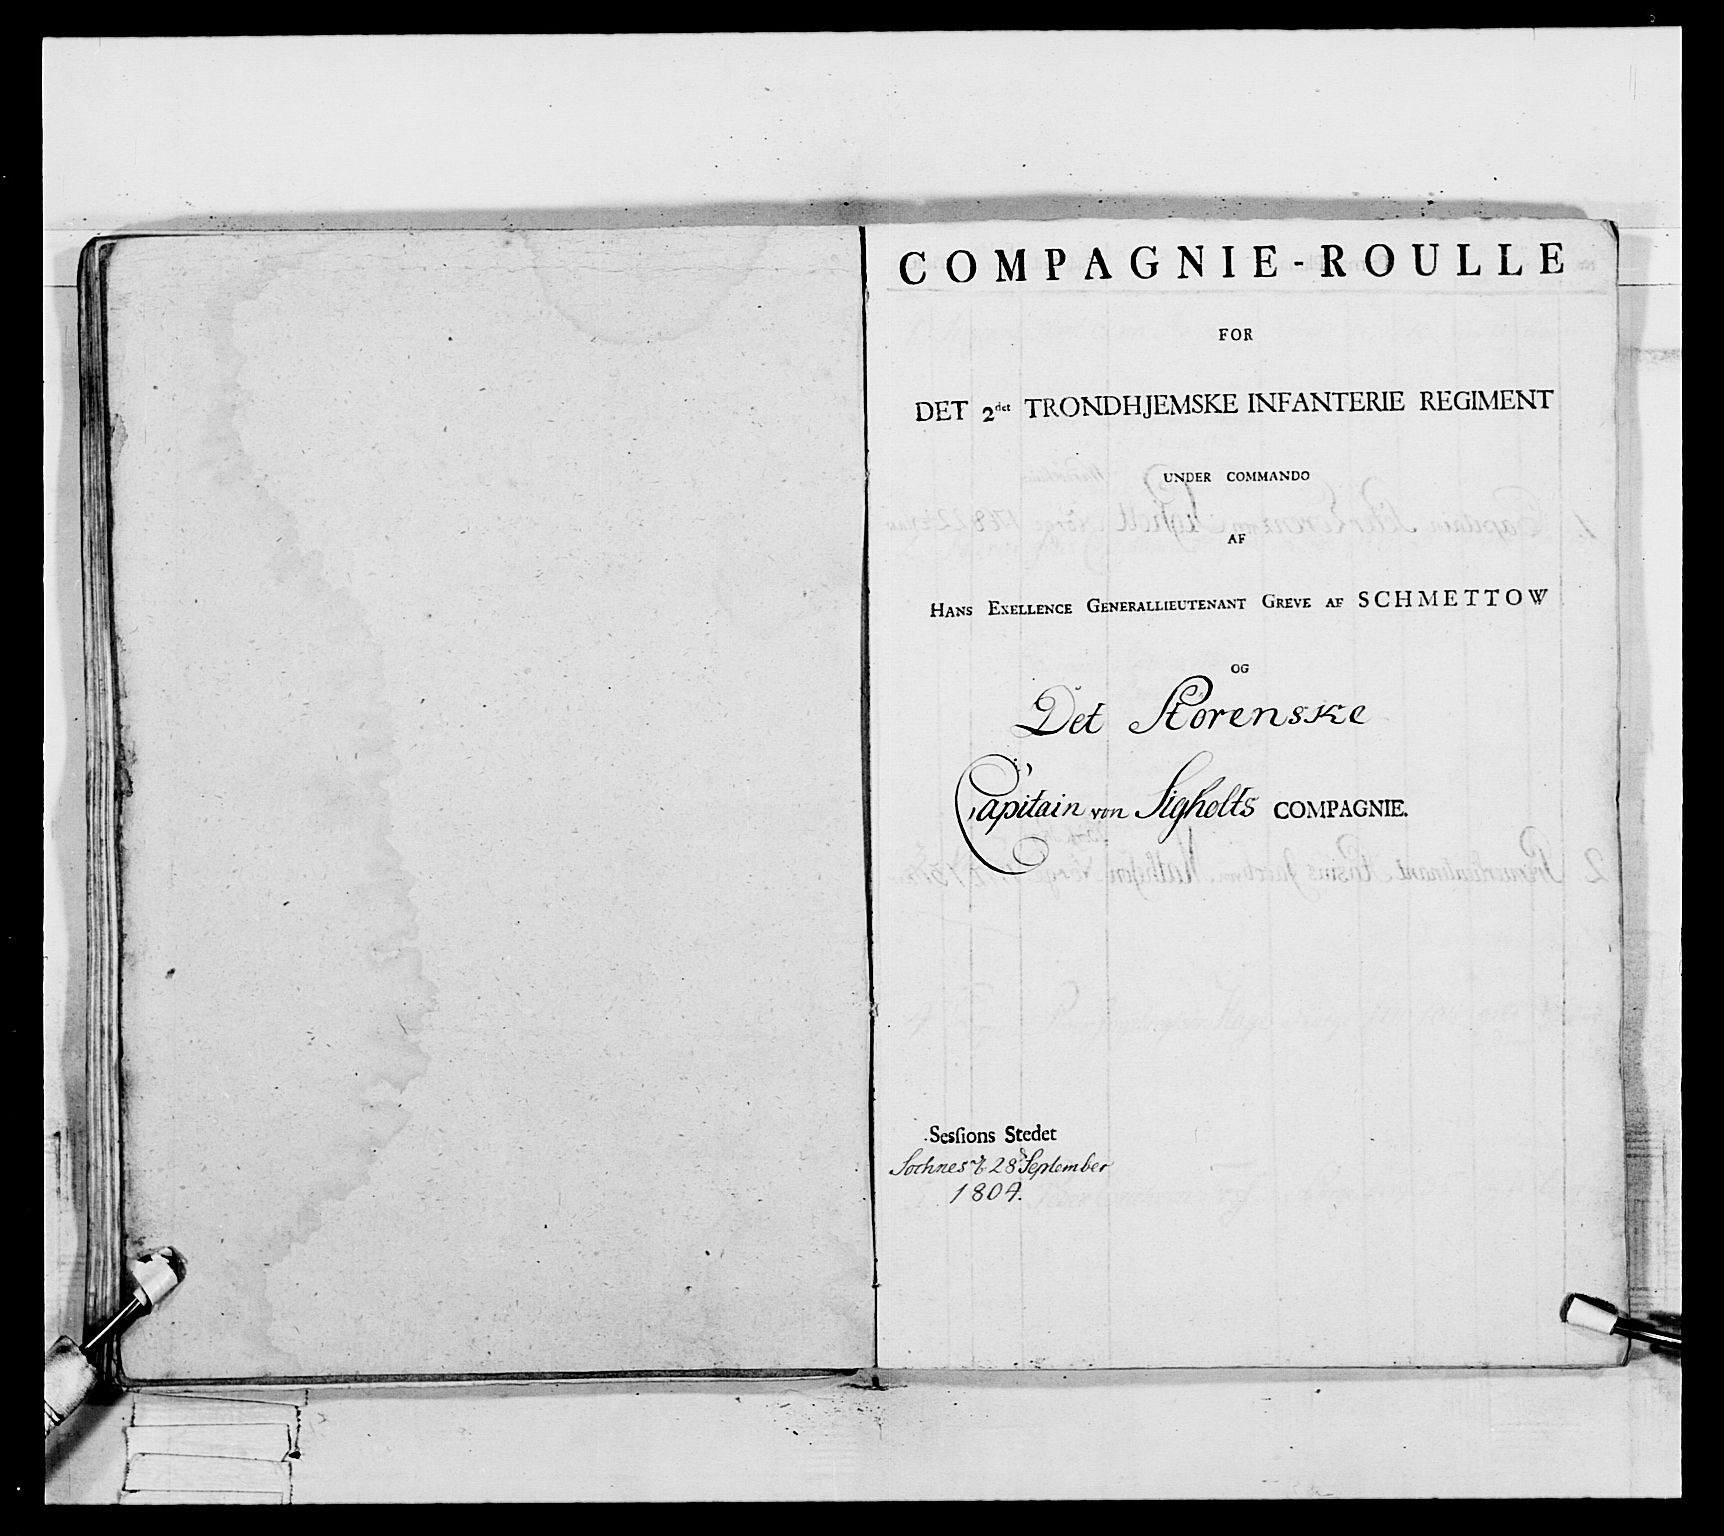 COMPAGNIE-ROULLE
FOR
DET 2det TRONDHJEMSKE INFANTERIE REGIMENT
UNDER COMMANDO
AF
HANS EXELLENCE GENERALLIEUTENANT GREVE AF SCHMETTOW
OG
Det Størenske
Capitain von Sigholts COMPAGNIE.
Sesſions Stedet
28d September
1804.